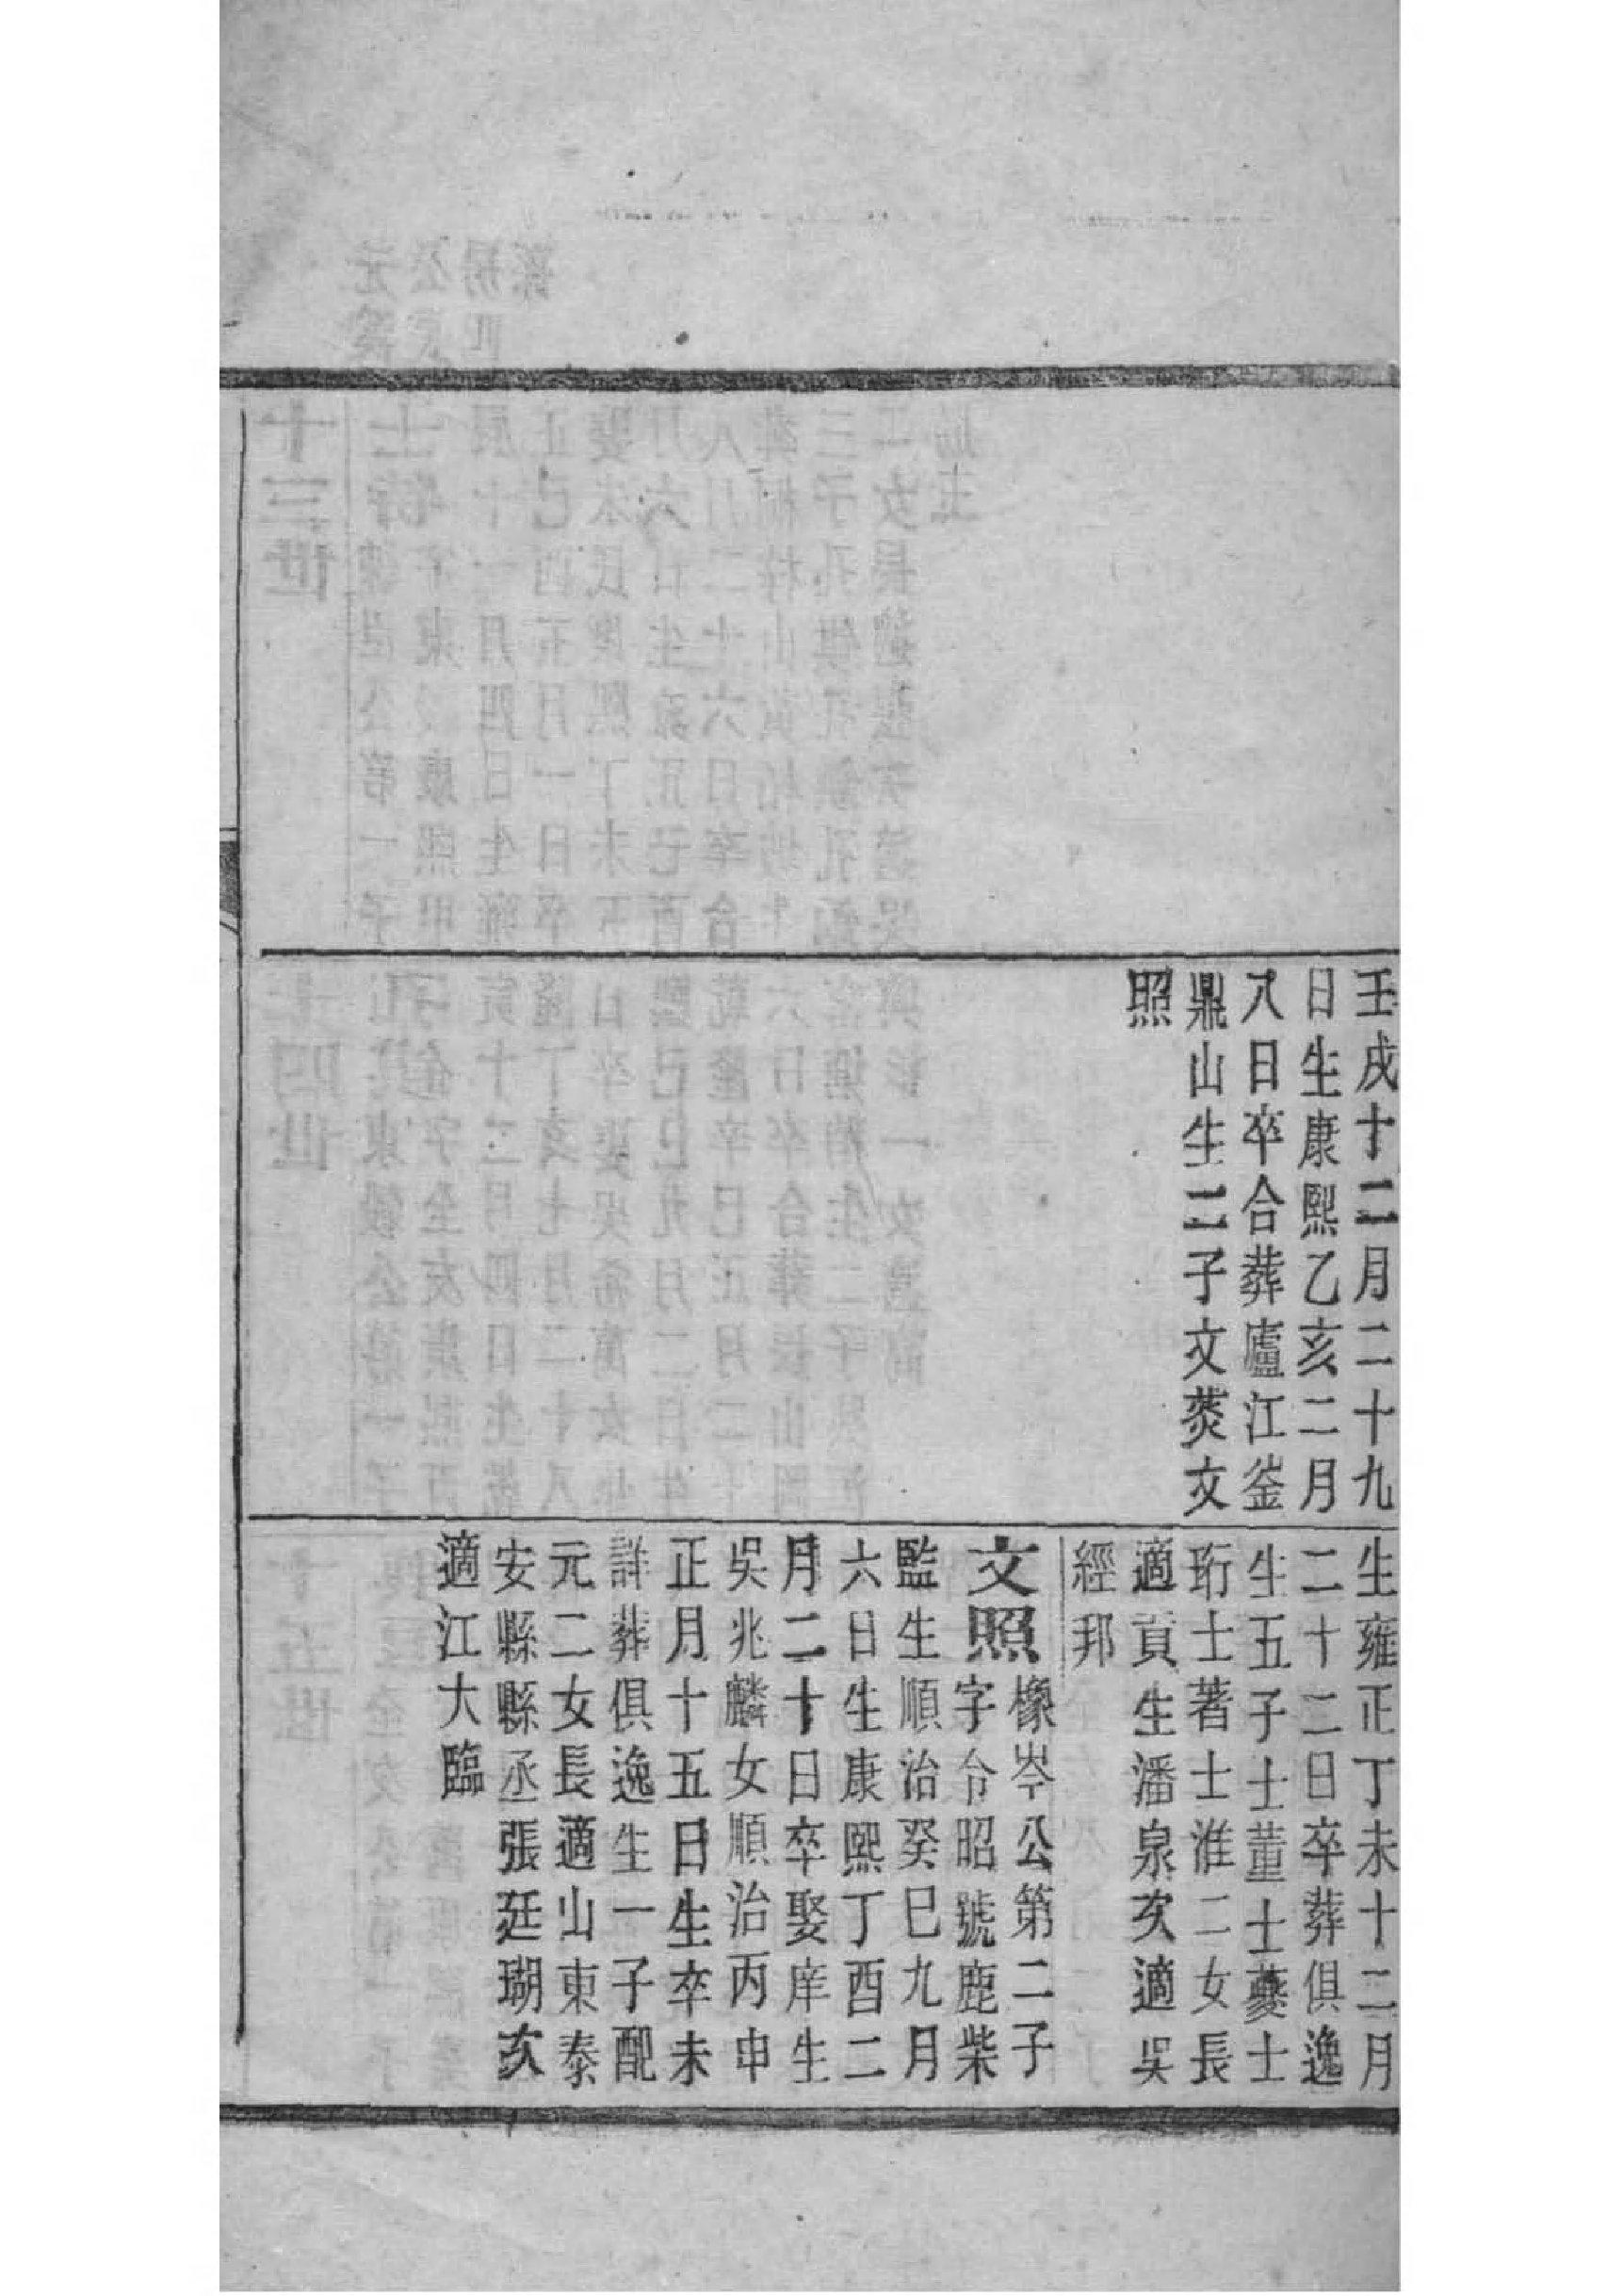 壬戌十二月二十九
日生康熙乙亥二月
八日卒合葬廬江崟
鼎山生二子文煑文
照
生雍正丁未十二月
二十二日卒葬俱逸
生五子士董士夔士
珩士著士淮二女長
適貢生潘泉次適吳
經邦
文照
橡岑公第二子
字令昭號鹿柴
監生順治癸巳九月
六日生康熙丁酉二
月二十日卒娶庠生
吳兆麟女順治丙申
正月十五日生卒未
詳葬俱逸生一子配
元二女長適山東泰
安縣縣丞張廷瑚次
適江大臨